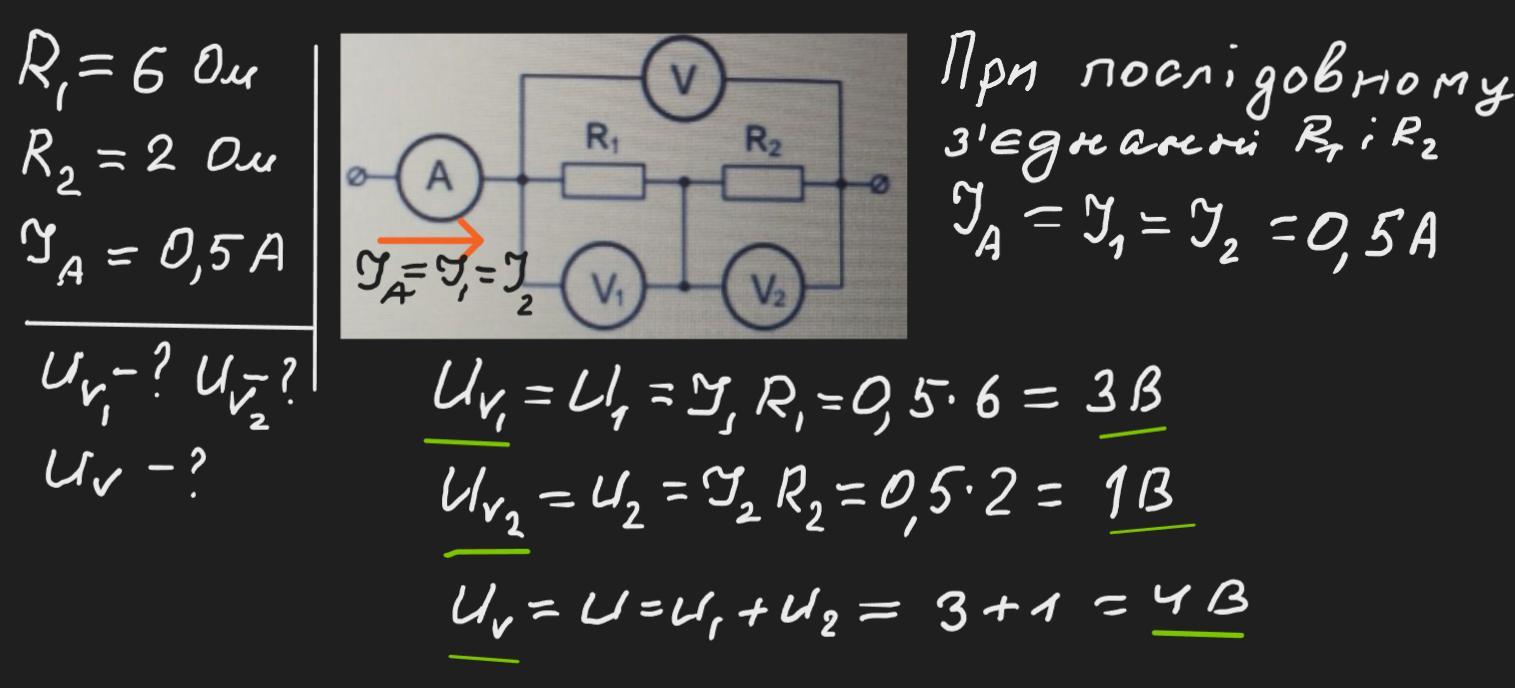 R₁ = 6 Ом
R₂ = 2 Ом
I_A = 0,5 А
U_V₁ - ? U_V₂ - ?
U_V - ?
V
R₁ R₂
A
V₁ V₂
I_A = I₁ = I₂
При послідовному
з'єднанні R₁ і R₂
I_A = I₁ = I₂ = 0,5 А
U_V₁ = U₁ = I₁ R₁ = 0,5 · 6 = 3 В
U_V₂ = U₂ = I₂ R₂ = 0,5 · 2 = 1 В
U_V = U = U₁ + U₂ = 3 + 1 = 4 В